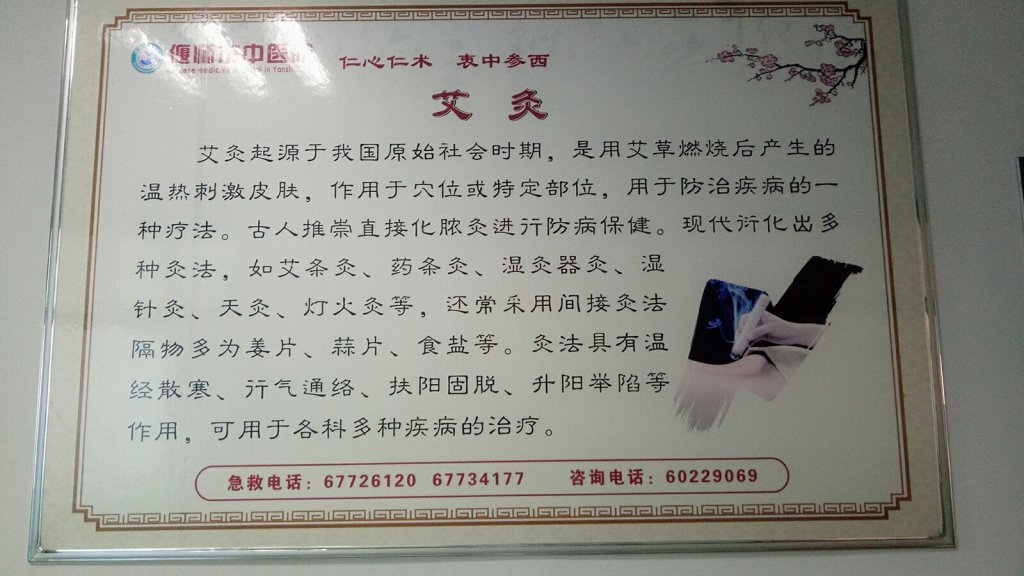 偃师市中医院
仁心仁术 衷中参西
艾灸
艾灸起源于我国原始社会时期，是用艾草燃烧后产生的
温热刺激皮肤，作用于穴位或特定部位，用于防治疾病的一
种疗法。古人推崇直接化脓灸进行防病保健。现代衍化出多
种灸法，如艾条灸、药条灸、湿灸器灸、湿
针灸、天灸、灯火灸等，还常采用间接灸法
隔物多为姜片、蒜片、食盐等。灸法具有温
经散寒、行气通络、扶阳固脱、升阳举陷等
作用，可用于各科多种疾病的治疗。
急救电话：67726120 67734177 咨询电话：60229069